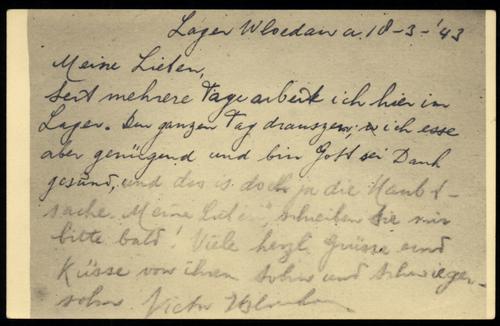 Lager Wlodawa 18-3-'43
Meine Lieben,
Seit mehrere Tage arbeit ich hier im
Lager. Den ganzen Tag drauszen, ich esse
aber genügend und bin Gott sei Dank
gesund, und das is doch ja die Haubt-
sache. Meine Lieben, schreiben Sie mir
bitte bald! Viele herzl. Grüsse und
Küsse von ihren Sohn und Schwieger-
sohn Victor